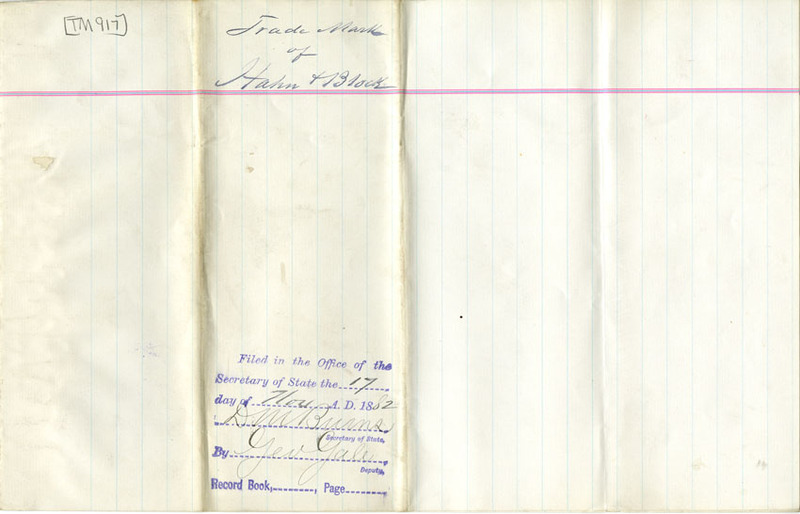 [TM 917]
Trade Mark
of
Hahn & Block
Filed in the Office of the
Secretary of State the 17
day of Nov A. D. 1882
D M Burns
Secretary of State.
By Geo
Deputy.
Record Book, , Page